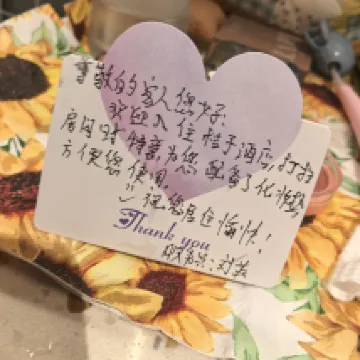 尊敬的家人您好:
欢迎入住桔子酒店,打扫
房间时特意为您配备了化妆垫,
方便您使用,
祝您居住愉快!
Thank you
服务员:刘